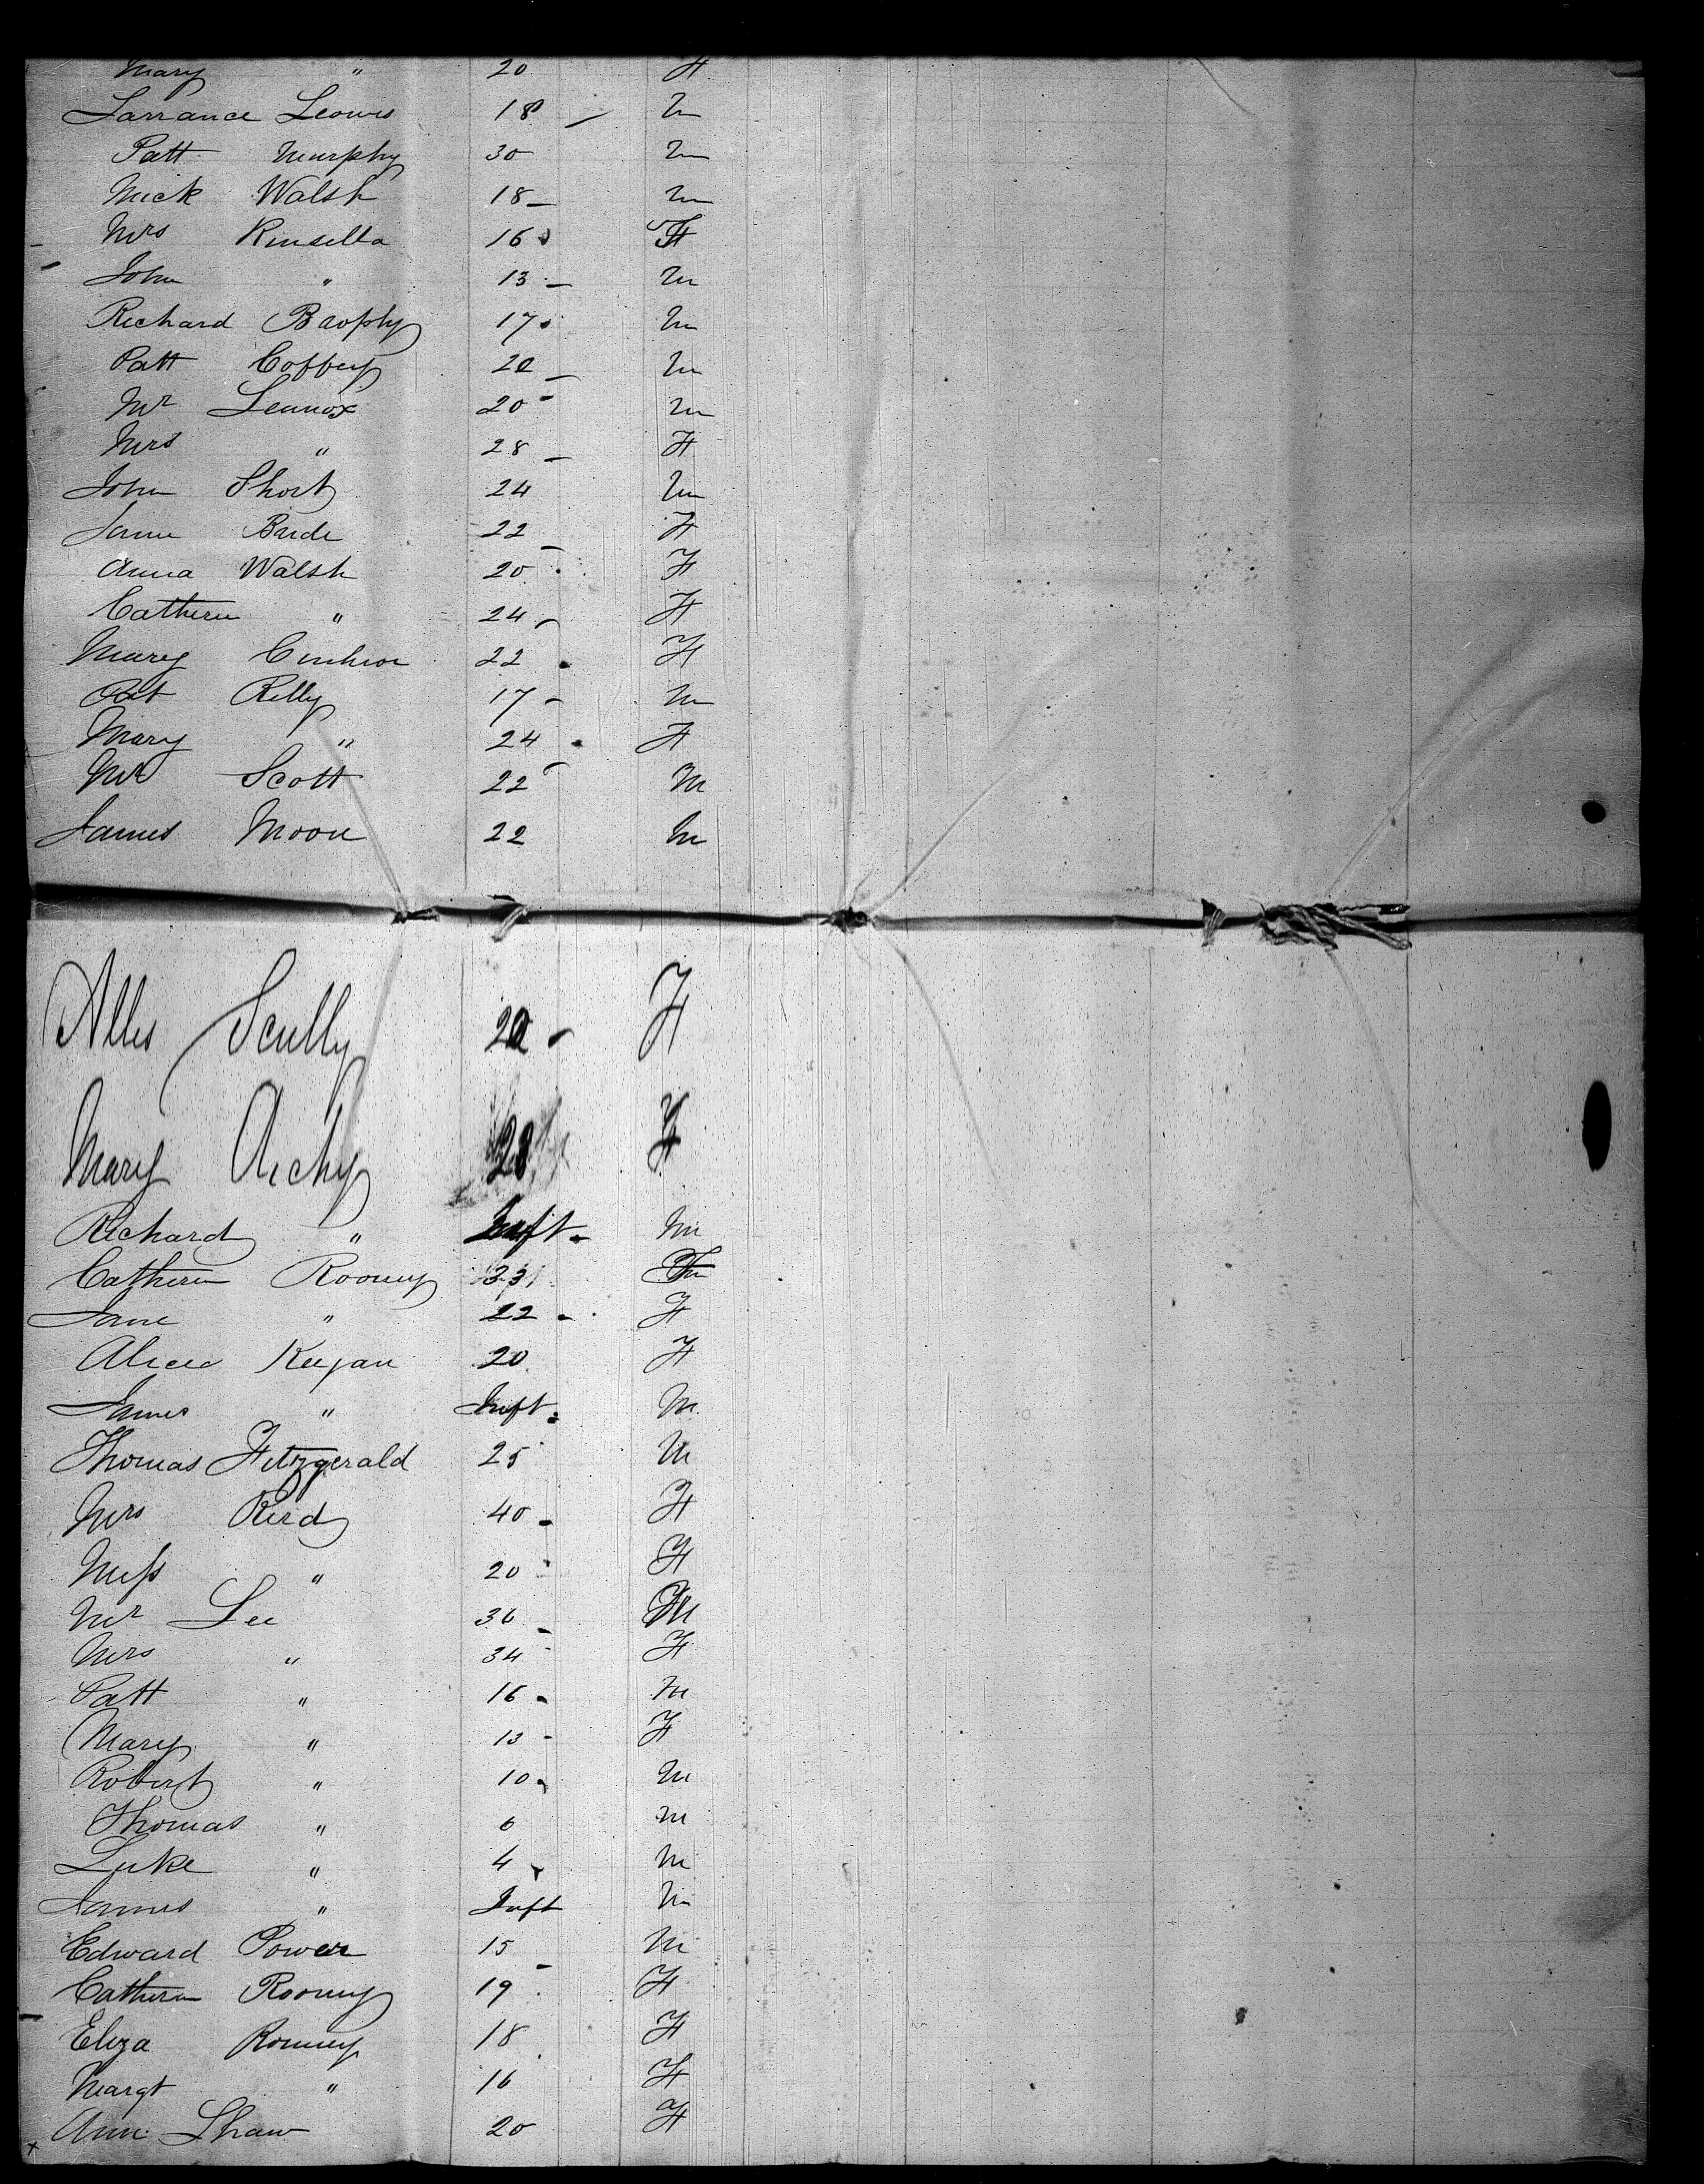 Mary " 20 F
Larrance Leowis 18 M
Patt Murphy 30 M
Mick Walsh 18 M
Mrs Kinsella 16 F
John " 13 M
Richard Brophy 17 M
Patt Coffey 22 M
Mr Lennox 20 M
Mrs " 28 F
John Short 24 M
Jane 22 F
Anna Walsh 20 F
Cathern " 24 F
Mary 22 F
Pat Rilly 17 M
Mary " 24 F
Mr Scott 22 M
James Moon 22 M
Alles Scully 20 F
Mary Archy 28 F
Richard " Inft M
Cathern Rooney 23
Jane " 22 F
Alicia Keegan 20 F
James " Inft M
Thomas Fitzgerald 25 M
Mrs Reid 40 F
Miss " 20 F
Mr Lee 36 M
Mrs " 34 F
Patt " 16 M
Mary " 13 F
Robert " 10 M
Thomas " 6 M
Luke " 4 M
James " Inft M
Edward Power 15 M
Cathern Rooney 19 F
Eliza Romney 18 F
Margt " 16 F
Ann Shaw 20 F